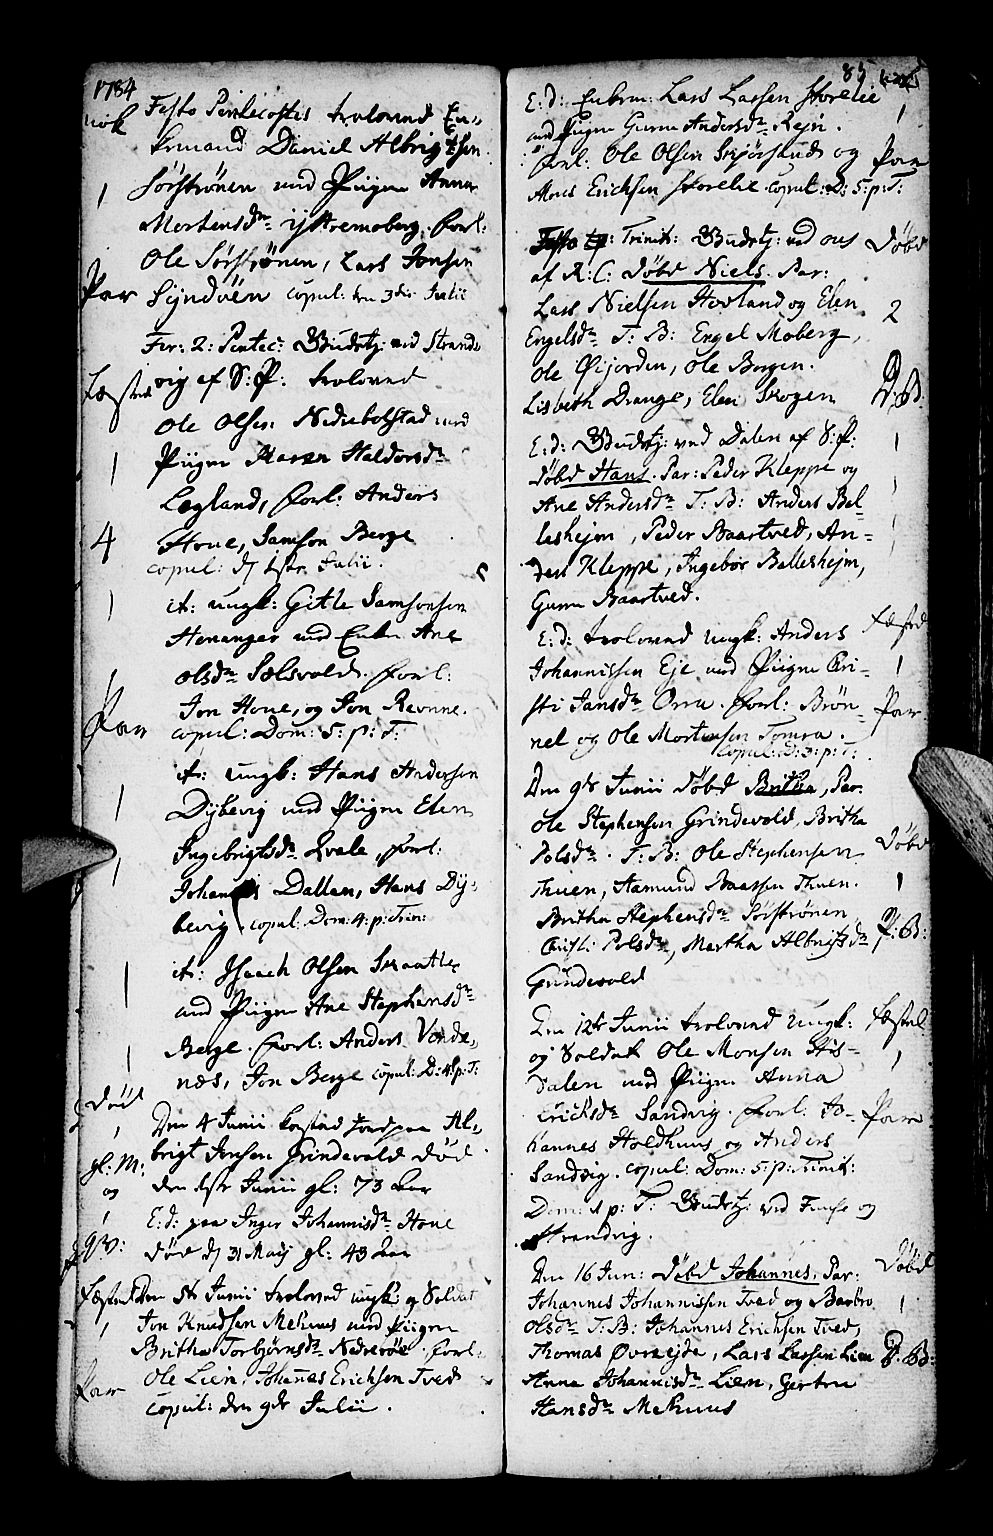 1784
Festo Pentecostes trolovead En,,
kemand Daniel Albrigtsen
Sørstrønen med Piigen Anna
Mortensdr. ystremoberg. Forl:
Ole Sørstrønen, Lars Jonsen
Par
Syndven copul: den 3die Julii
Fer: 2: Pentec: Gudstj: ved Strand-
vig af S: P: trolovead
Fæsted
Ole Olsen Nedrebolstad med
1
Piigen Maren Haldorsdr.
Legland, Forl: Anders
4
Hone, Samson Berge
copul: d. 1ste Julii.
1
it: ungk: Gitle Samsonsen
Henanger med Enken Ane
olsdr. Sælsvold. Forl:
Jon Hone, og Jon Revnne.
Par
copul: Dom: 5: p: T:
it: ungk: Hans Andersen
1
Dybevig med Piigen Elen
Ingebrigtsdr. Qvale, Forl:
1
Johannes Dallan, Hans Dy-
bevig, copul: Dom: 4: p: Trin:
it: Isaach Olsen Skaatte,
1
med Piigen Ane Stephensdr.
Berge. Forl: Anders Vonde,
1
næs, Jon Berge copul: D: 4: p: T:
død
Den 4 Junii kastad Jord paa Al,
1
brigt Jensen Grindevold død
gl: M:
den 1ste Junii gl: 73 Aar
og
E: d: paa Inger Johannisdr. Hone
1
qv:
død d. 31 Maij gl: 43 Aar
Fæsted
Den 5te Junii trolovead ungk: og Soldat
1
Jon Knudsen Mehuus med Piigen
Britha Torbjørnsdr. Nedrerøe. Forl:
Par
Ole Lien, Johanes Erichsen Tved
copul: den 9de Julii.
85
E: d: Enkem: Lars Larsen Skorelie
1
med Piigen Guren Andersdr. Rejn.
Forl: Ole Olsen Skjørsand og
Par
Mons Erichsen Skorelie. copul: D: 5: p: T:
Festo Trinit: Gudstj: ved ous
Døbd
af R: C: Døbd Niels. Par:
Lars Nielsen Hovland og Elen
2
Engelsdr. T: B: Engel Moberg,
Ole Øijorden, Ole Borgen.
Lisbeth Drange, Elen Skogen
D: B:
E: d: Gudstj: ved Dalen af S: P:
1
Døbd Hans. Par: Peder Kleppe og
Ane Andersdr. T: B: Anders Bal-
1
leshejm, Peder Baartved, An-
1
ders Kleppe, Ingebor Balleshejm,
Guren Baartved.
E: d: trolovead ungk: Anders
Fæsted
Johannissen Eje med Piigen Cri-
1
sti Jansdr. Orra. Forl: Brøn-
Par
nel og Ole Mortensen Tomra.
copul: D: 3: p: T:
Den 9de Junii Døbd Britha, Par:
Ole Stephensen Grindevold, Britha
Døbd
Polsdr. T: B: Ole Stephensen
Thuen, Aamund Baarsen Thuen.
1
Britha Stephensdr. Sørstrønen
Cristi: Polsdr., Martha Albrigtsdr.
P: B:
Grindevold
Den 12te Junii trolovead Ungk:
Fæsted
og Soldat Ole Monsen Stis-
1
dalen med Piigen Anna
Erichsdr. Sandvig. Forl: Jo-
Par
hannes Holdhuus og Anders
Sandvig. copul: Dom: 5: p: Trinit:
Dom: 1 p: T: Gudstj: ved Fuuse og
Strandvig.
Den 16 Jun: Døbd Johannes. Par:
Døbd
Johannes Johannissen Tved og Barbro
1
olsdr. T: B: Johannes Erichsen Tved,
Thomas Øvreejde, Lars Larsen Lien
D: B:
Anna Johannisdr. Lien, Gertru
Hansdr. Mehuus